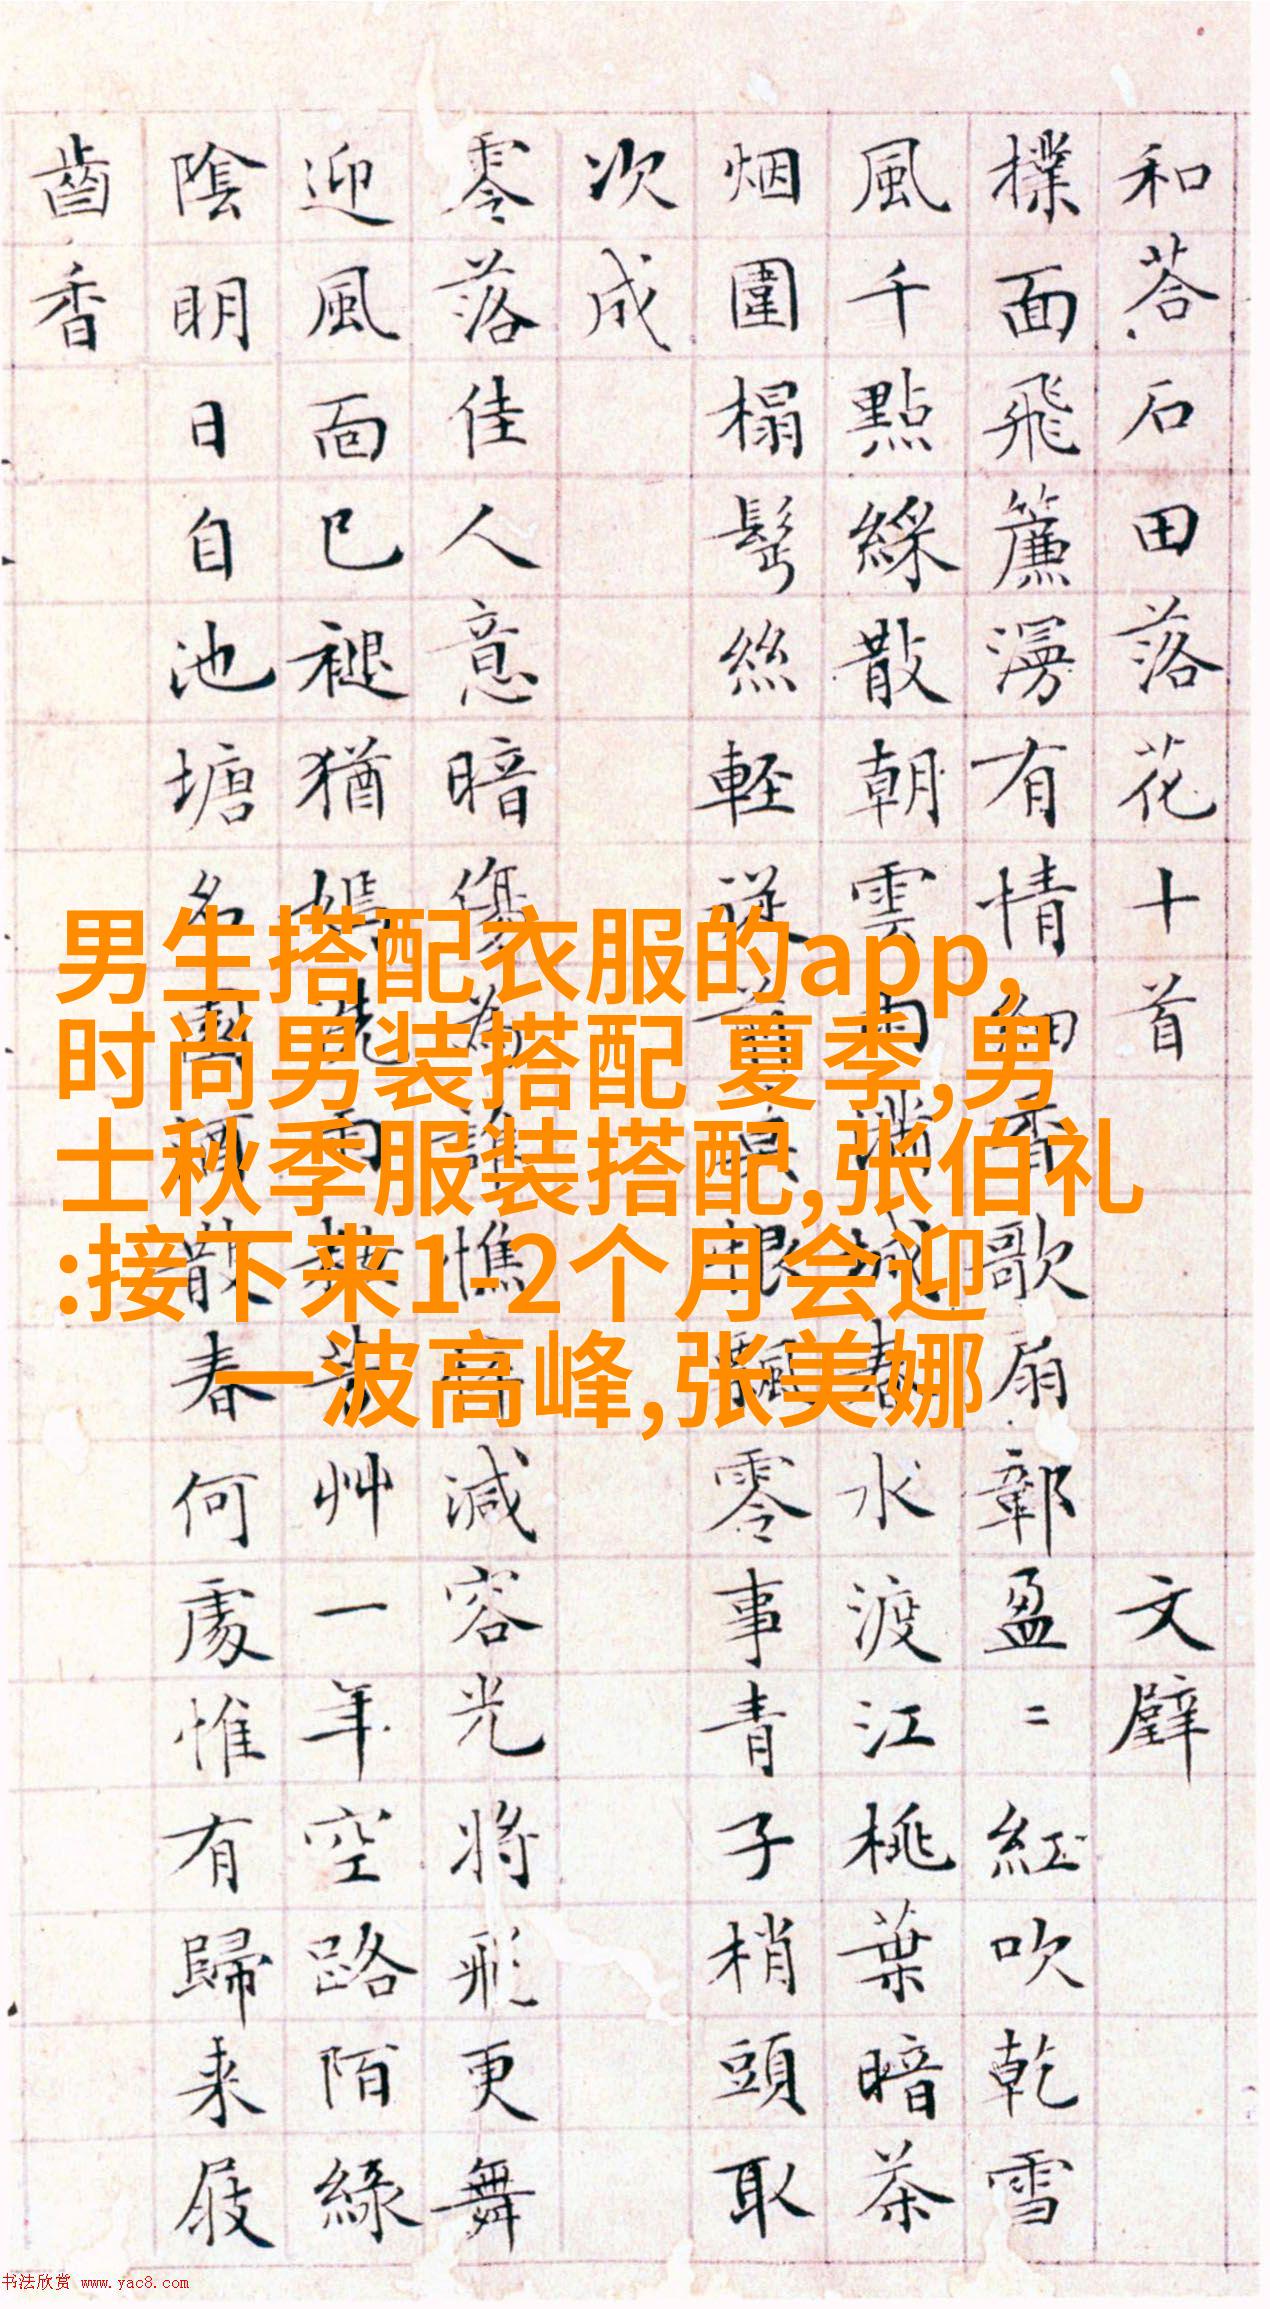 和荅石田落花十首 文璧
撲面飛簾漫有情細香歌扇鄣盈〻紅吹乾雪
風千點綵散朝雲雨滿城春水渡江桃葉暗茶
烟圍榻鬢絲輕從前莫恨飄零事青子梢頭取
次成
零落佳人意暗傷為誰憔悴減容光將飛更舞
迎風面已褪猶嫣洗雨粧芳艸一年空路陌綠
陰明日自池塘名園酒散春何處惟有歸来屐
齒香
男生搭配衣服的app,
时尚男装搭配 夏季,男
士秋季服装搭配,张伯礼
:接下来1-2个月会迎
一波高峰,张美娜
书法欣赏 www.yac8.com